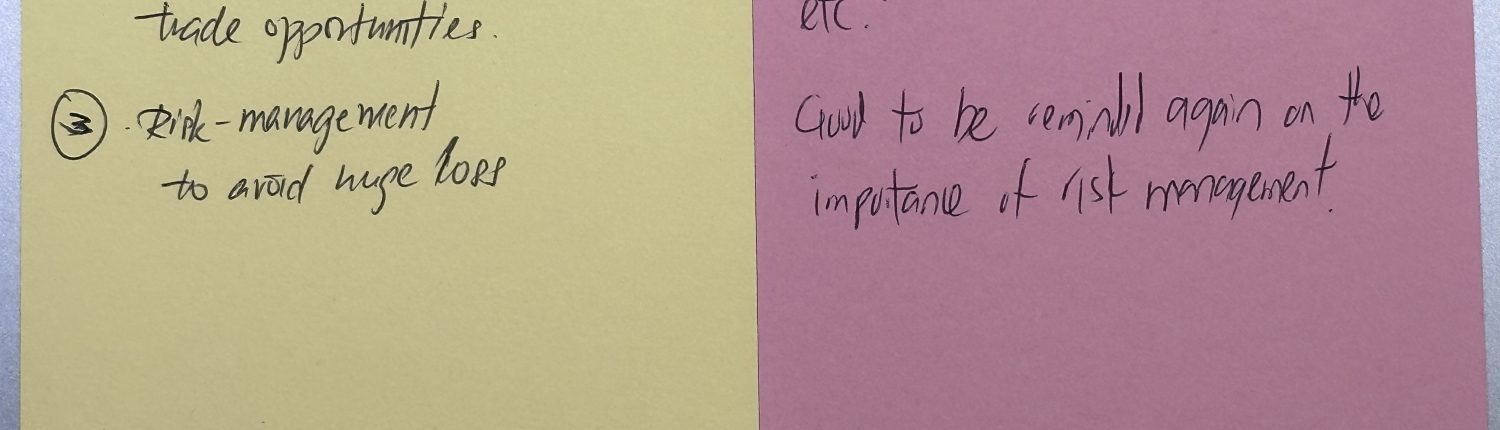 trade opportunities.
③. Risk-management
to avoid huge loss
etc.
Good to be remindd again on the
importance of risk management.